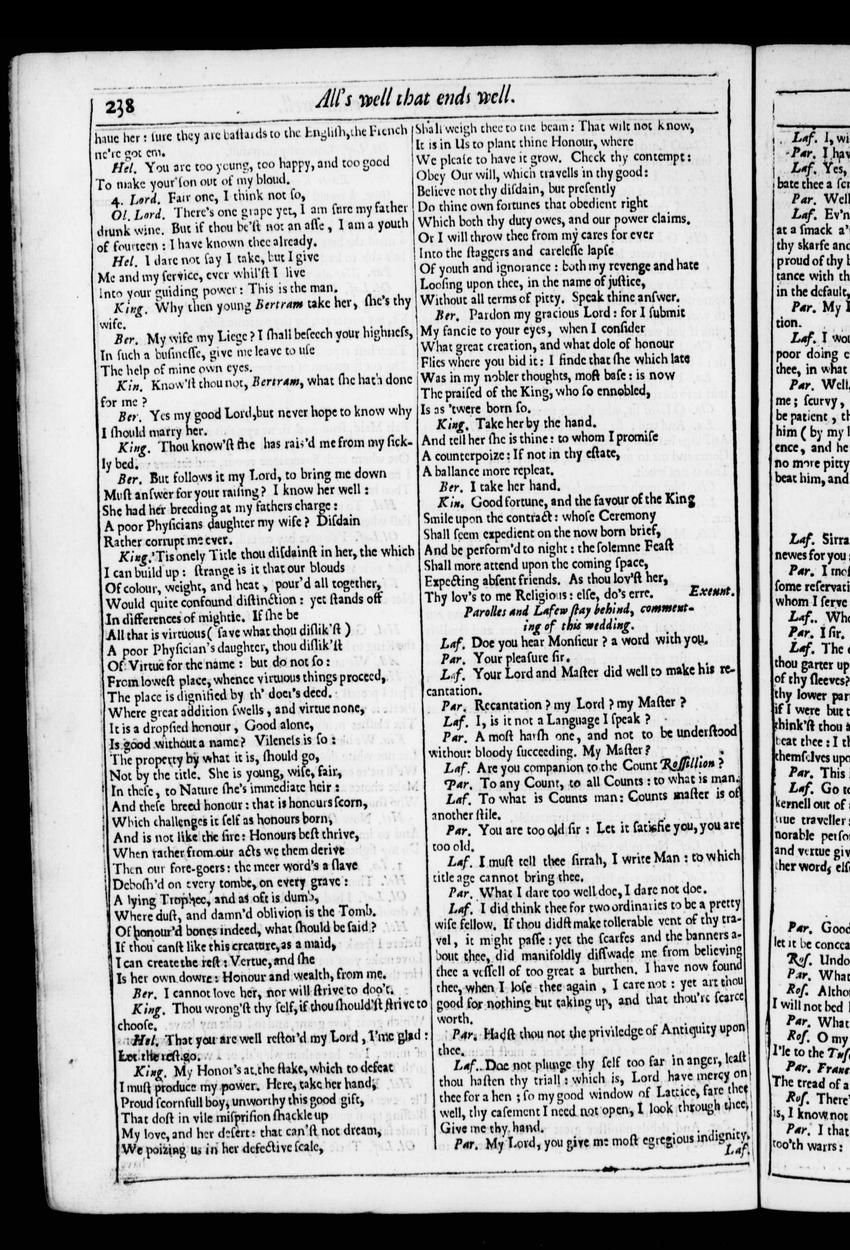 238
All's well that ends well.
haue her: sure they are bastards to the English, the French
ne're got em.
Hel. You are too young, too happy, and too good
To make your'son out of my bloud.
4. Lord. Fair one, I think not so,
Ol. Lord. There's one grape yet, I am sure my father
drunk wine. But if thou be'st not an asse, I am a youth
of fourteen: I have known thee already.
Hel. I dare not say I take, but I give
Me and my service, ever whil'st I live
Into your guiding power: This is the man.
King. Why then young Bertram take her, she's thy
wife.
Ber. My wife my Liege? I shall beseech your highness,
In such a businesse, give me leave to use
The help of mine own eyes.
Kin. Know'st thou not, Bertram, what she hath done
for me?
Ber. Yes my good Lord, but never hope to know why
I should marry her.
King. Thou know'st she has rais'd me from my sick-
ly bed.
Ber. But follows it my Lord, to bring me down
Must answer for your raising? I know her well:
She had her breeding at my fathers charge:
A poor Physicians daughter my wife? Disdain
Rather corrupt me ever.
King. 'Tis onely Title thou disdainst in her, the which
I can build up: strange is it that our blouds
Of colour, weight, and heat, pour'd all together,
Would quite confound distinction: yet stands off
In differences of mightie. If she be
All that is virtuous (save what thou dislik'st)
A poor Physician's daughter, thou dislik'st
Of Virtue for the name: but do not so:
From lowest place, whence virtuous things proceed,
The place is dignified by th' doer's deed.
Where great addition swells, and virtue none,
It is a dropsied honour, Good alone,
Is good without a name? Vileness is so:
The property by what it is, should go,
Not by the title. She is young, wise, fair,
In these, to Nature she's immediate heir:
And these breed honour: that is honours scorn,
Which challenges it self as honours born,
And is not like the sire: Honours best thrive,
When rather from our acts we them derive
Then our fore-goers: the meer word's a slave
Debosh'd on every tombe, on every grave:
A lying Trophee, and as oft is dumb,
Where dust, and damn'd oblivion is the Tomb.
Of honour'd bones indeed, what should be said?
If thou canst like this creature, as a maid,
I can create the rest: Vertue, and she
Is her own dowre: Honour and wealth, from me.
Ber. I cannot love her, nor will strive to doo't.
King. Thou wrong'st thy self, if thou should'st strive to
choose.
Hel. That you are well restor'd my Lord, I'me glad:
Let the rest go.
King. My Honor's at the stake, which to defeat
I must produce my power. Here, take her hand,
Proud scornfull boy, unworthy this good gift,
That dost in vile misprision shackle up
My love, and her desert: that can'st not dream,
We poizing us in her defective scale,
Shall weigh thee to the beam: That wilt not know,
It is in Us to plant thine Honour, where
We please to have it grow. Check thy contempt:
Obey Our will, which travells in thy good:
Believe not thy disdain, but presently
Do thine own fortunes that obedient right
Which both thy duty owes, and our power claims.
Or I will throw thee from my cares for ever
Into the staggers and carelesse lapse
Of youth and ignorance: both my revenge and hate
Loosing upon thee, in the name of justice,
Without all terms of pitty. Speak thine answer.
Ber. Pardon my gracious Lord: for I submit
My fancie to your eyes, when I consider
What great creation, and what dole of honour
Flies where you bid it: I finde that she which late
Was in my nobler thoughts, most base: is now
The praised of the King, who so ennobled,
Is as 'twere born so.
King. Take her by the hand.
And tell her she is thine: to whom I promise
A counterpoize: If not in thy estate,
A ballance more repleat.
Ber. I take her hand.
Kin. Good fortune, and the favour of the King
Smile upon the contract: whose Ceremony
Shall seem expedient on the now born brief,
And be perform'd to night: the solemne Feast
Shall more attend upon the coming space,
Expecting absent friends. As thou lov'st her,
Thy lov's to me Religious: else, do's erre. Exeunt.
Parolles and Lafew stay behind, comment-
ing of this wedding.
Laf. Doe you hear Monsieur? a word with you.
Par. Your pleasure sir.
Laf. Your Lord and Master did well to make his re-
cantation.
Par. Recantation? my Lord? my Master?
Laf. I, is it not a Language I speak?
Par. A most harsh one, and not to be understood
without bloody succeeding. My Master?
Laf. Are you companion to the Count Rossillion?
Par. To any Count, to all Counts: to what is man.
Laf. To what is Counts man: Counts master is of
another stile.
Par. You are too old sir: Let it satisfie you, you are
too old.
Laf. I must tell thee sirrah, I write Man: to which
title age cannot bring thee.
Par. What I dare too well doe, I dare not doe.
Laf. I did think thee for two ordinaries to be a pretty
wise fellow. If thou didst make tollerable vent of thy tra-
vel, it might passe: yet the scarfes and the banners a-
bout thee, did manifoldly disswade me from believing
thee a vessell of too great a burthen. I have now found
thee, when I lose thee again, I care not: yet art thou
good for nothing but taking up, and that thou'rt scarce
worth.
Par. Hadst thou not the priviledge of Antiquity upon
thee.
Laf. Doe not plunge thy self too far in anger, least
thou hasten thy triall: which is, Lord have mercy on
thee for a hen; so my good window of Lattice, fare thee
well, thy casement I need not open, I look through thee,
Give me thy hand.
Par. My Lord, you give me most egregious indignity.
Laf.
Laf. I, wi
Par. I hav
Laf. Yes,
bate thee a scr
Par. Well
Laf. Ev'n
at a smack a'
thy skarfe and
proud of thy b
tance with th
in the default,
Par. My L
tion.
Laf. I wou
poor doing e
thee, in what
Par. Well,
me; scurvy,
be patient, th
him (by my l
ence, and he
no more pitty
beat him, and
Laf. Sirra
newes for you
Par. I mos
some reservati
whom I serve
Laf. Who
Par. I sir.
Laf. The d
thou garter up
of thy sleeves?
thy lower par
if I were but t
think'st thou a
beat thee: I th
themselves upo
Par. This
Laf. Go to
kernell out of
true traveller:
norable perso
and vertue giv
ther word, else
Par. Good
let it be concea
Ros. Undo
Par. What
Ros. Altho
I will not bed
Par. What
Ros. O my
I'le to the Tusc
Par. Franc
The tread of a
Ros. There'
is, I know not
Par. I that
too'th warrs: